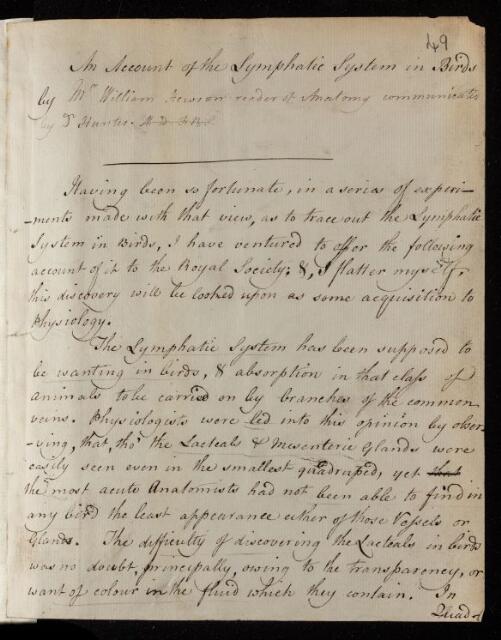 49
An Account of the Lymphatic System in Birds
by Mr. William Hewson reader of Anatomy communicated
by Dr. Hunter
Having been so fortunate, in a series of experi-
-ments made with that view, as to trace out the Lymphatic
System in Birds, I have ventured to offer the following
account of it to the Royal Society; &, I flatter myself,
this discovery will be looked upon as some acquisition to
Physiology.
The Lymphatic System has been supposed to
be wanting in birds, & absorption in that class of
animals to be carried on by branches of the common
veins. Physiologists were led into this opinion by obser-
-ving, that, tho' the Lacteals & Mesenteric Glands were
easily seen even in the smallest quadruped, yet that
the most acute Anatomists had not been able to find in
any bird the least appearance either of those Vessels or
Glands. The difficulty of discovering the Lacteals in birds
was no doubt, principally, owing to the transparency, or
want of colour in the fluid which they contain. In
Quad-